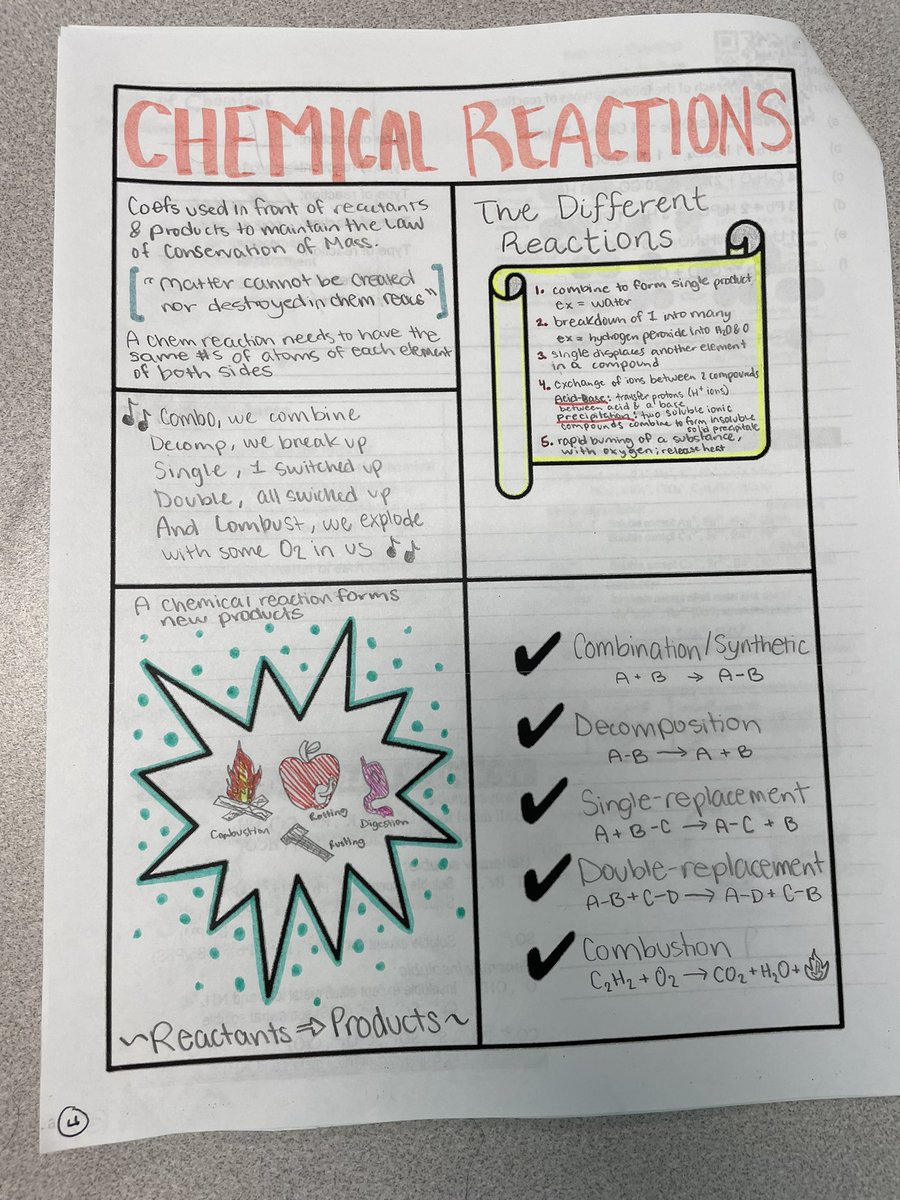 CHEMICAL REACTIONS
Coefs used in front of reactants
& products to maintain the Law
of Conservation of Mass.
["Matter cannot be created
nor destroyed in chem reacs"]
A chem reaction needs to have the
same #s of atoms of each element
of both sides
Combo, we combine
Decomp, we break up
Single, 1 switched up
Double, all swiched up
And Combust, we explode
with some O2 in us
The Different
Reactions
1. combine to form single product
ex = water
2. breakdown of 1 into many
ex = hydrogen peroxide into H2O & O
3. single displaces another element
in a compound
4. exchange of ions between 2 compounds
Acid-Base: transfer protons (H⁺ ions)
between acid & a base
precipitation: two soluble ionic
compounds combine to form insoluble
solid precipitate
5. rapid burning of a substance,
with oxygen; release heat
A chemical reaction forms
new products
Combustion
Rotting
Digestion
Rusting
~Reactants ⇒ Products~
✔ Combination/Synthetic
A + B → A-B
✔ Decomposition
A-B → A + B
✔ Single-replacement
A + B-C → A-C + B
✔ Double-replacement
A-B + C-D → A-D + C-B
✔ Combustion
C₂H₂ + O₂ → CO₂ + H₂O +
4